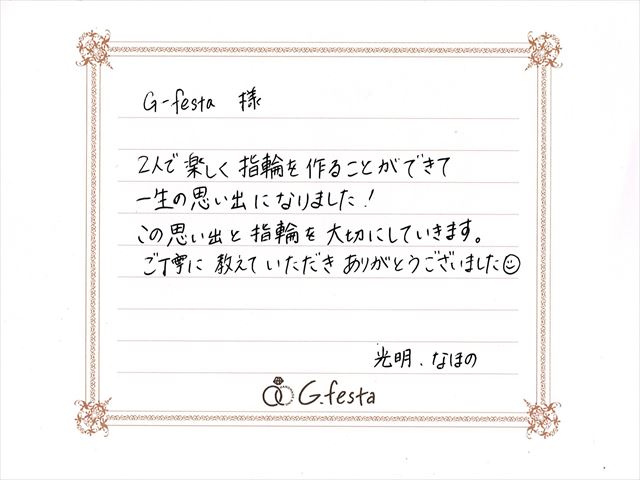 G-festa 様
2人で楽しく指輪を作ることができて
一生の思い出になりました!
この思い出と指輪を大切にしていきます。
ご丁寧に教えていただきありがとうございました☺
光明、なほの
G.festa